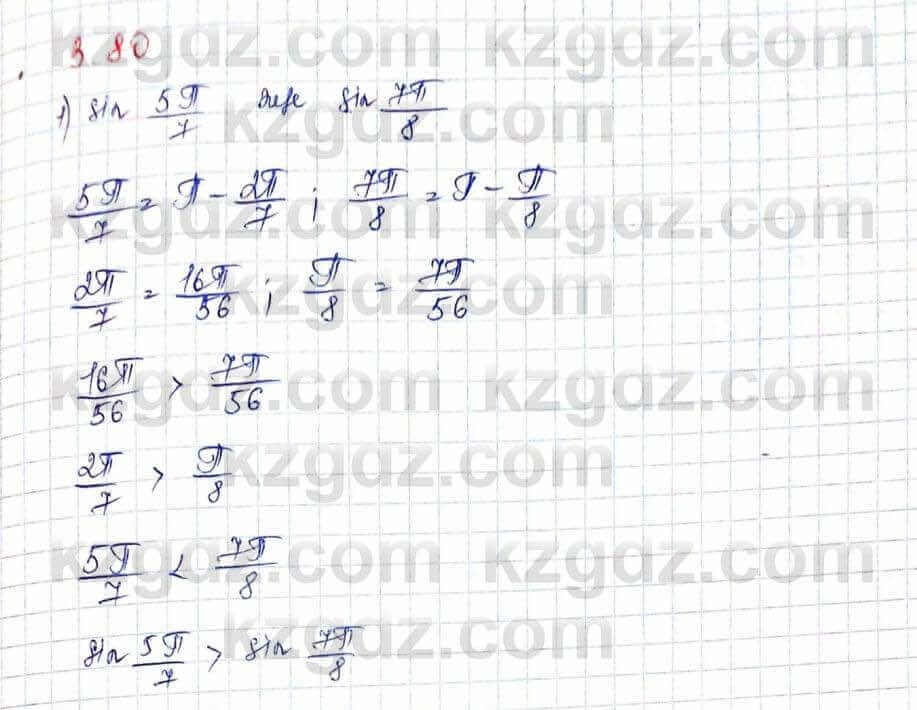 3.80
1) sin 5π/7 және sin 7π/8
5π/7 = π - 2π/7 ; 7π/8 = π - π/8
2π/7 = 16π/56 ; π/8 = 7π/56
16π/56 > 7π/56
2π/7 > π/8
5π/7 < 7π/8
sin 5π/7 > sin 7π/8
kzgdz.com kzgdz.com
kzgdz.com
kzgdz.com kzgdz.com
kzgdz.com
kzgdz.com kzgdz.com
kzgdz.com
kzgdz.com kzgdz.com
kzgdz.com